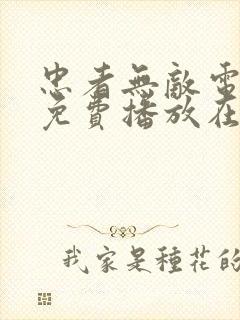 忠者無敵電
免費播放在
我家是種花的